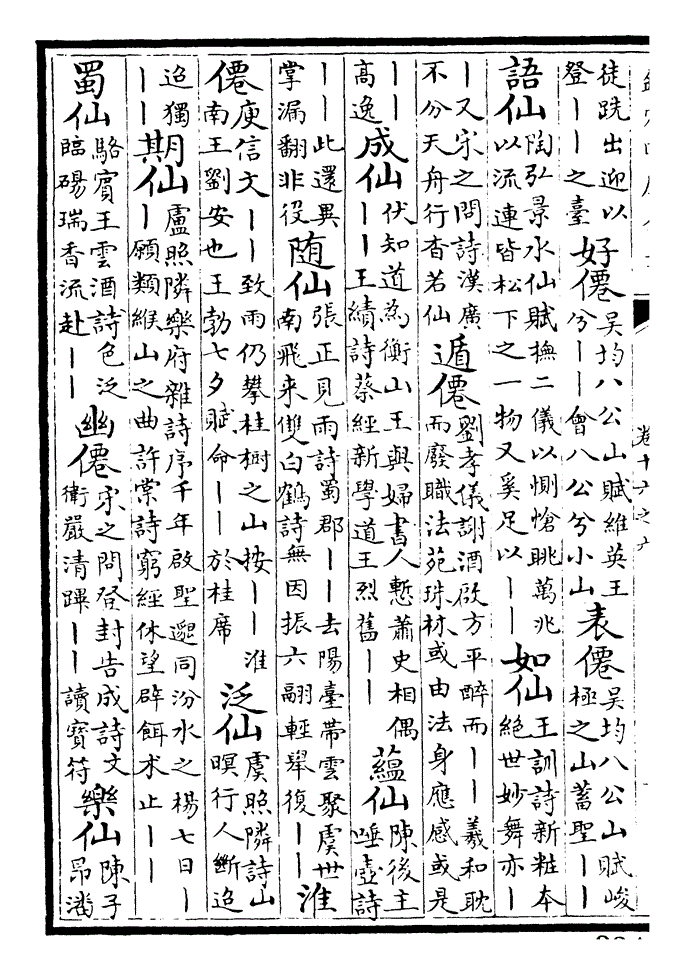 卷十六之六
徒跣出迎以登丨丨之臺 好僊 吳均八公山賦維英王兮丨丨會八公兮小山 表僊 吳均八公山賦峻極之山蓄聖丨丨
語仙 陶弘景水仙賦撫二儀以惻愴眺萬兆以流連皆松下之一物又奚足以丨丨 如仙 王訓詩新粧本絕世妙舞亦丨
丨又宋之問詩漢廣不分天舟行杳若仙 遁僊 劉孝儀謝酒啟方平醉而丨丨羲和耽而廢職法苑珠林或由法身應感或是
丨丨高逸 成仙 伏知道為衡山王與婦書人慙蕭史相偶丨丨王績詩蔡經新學道王烈舊丨丨 蘊仙 陳後主唾壺詩
丨丨此還異掌漏翻非役 随仙 張正見雨詩蜀郡丨丨去陽臺帶雲聚虞世南飛来雙白鶴詩無因振六翮輕舉復丨丨 淮
僊 庾信文丨丨致雨仍攀桂樹之山按丨丨淮南王劉安也王勃七夕賦命丨丨於桂席 泛仙 虞照隣詩山暝行人斷迢
迢獨丨丨 期仙 盧照隣樂府雜詩序千年啟聖邈同汾水之楊七日丨丨願類緱山之曲許棠詩窮經休望辟餌朮止丨丨
蜀仙 駱賓王雲酒詩色泛臨碭瑞香流赴丨丨 幽僊 宋之問登封告成詩文衛嚴清蹕丨丨讀寶符 樂仙 陳子昂潘